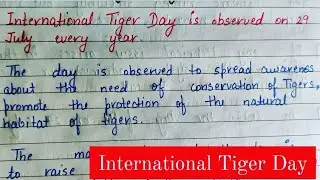 International Tiger Day is observed on 29
July every year.
The day is observed to spread awareness
about the need of conservation of Tigers,
promote the protection of the natural
habitat of tigers.
The
to raise
International Tiger Day